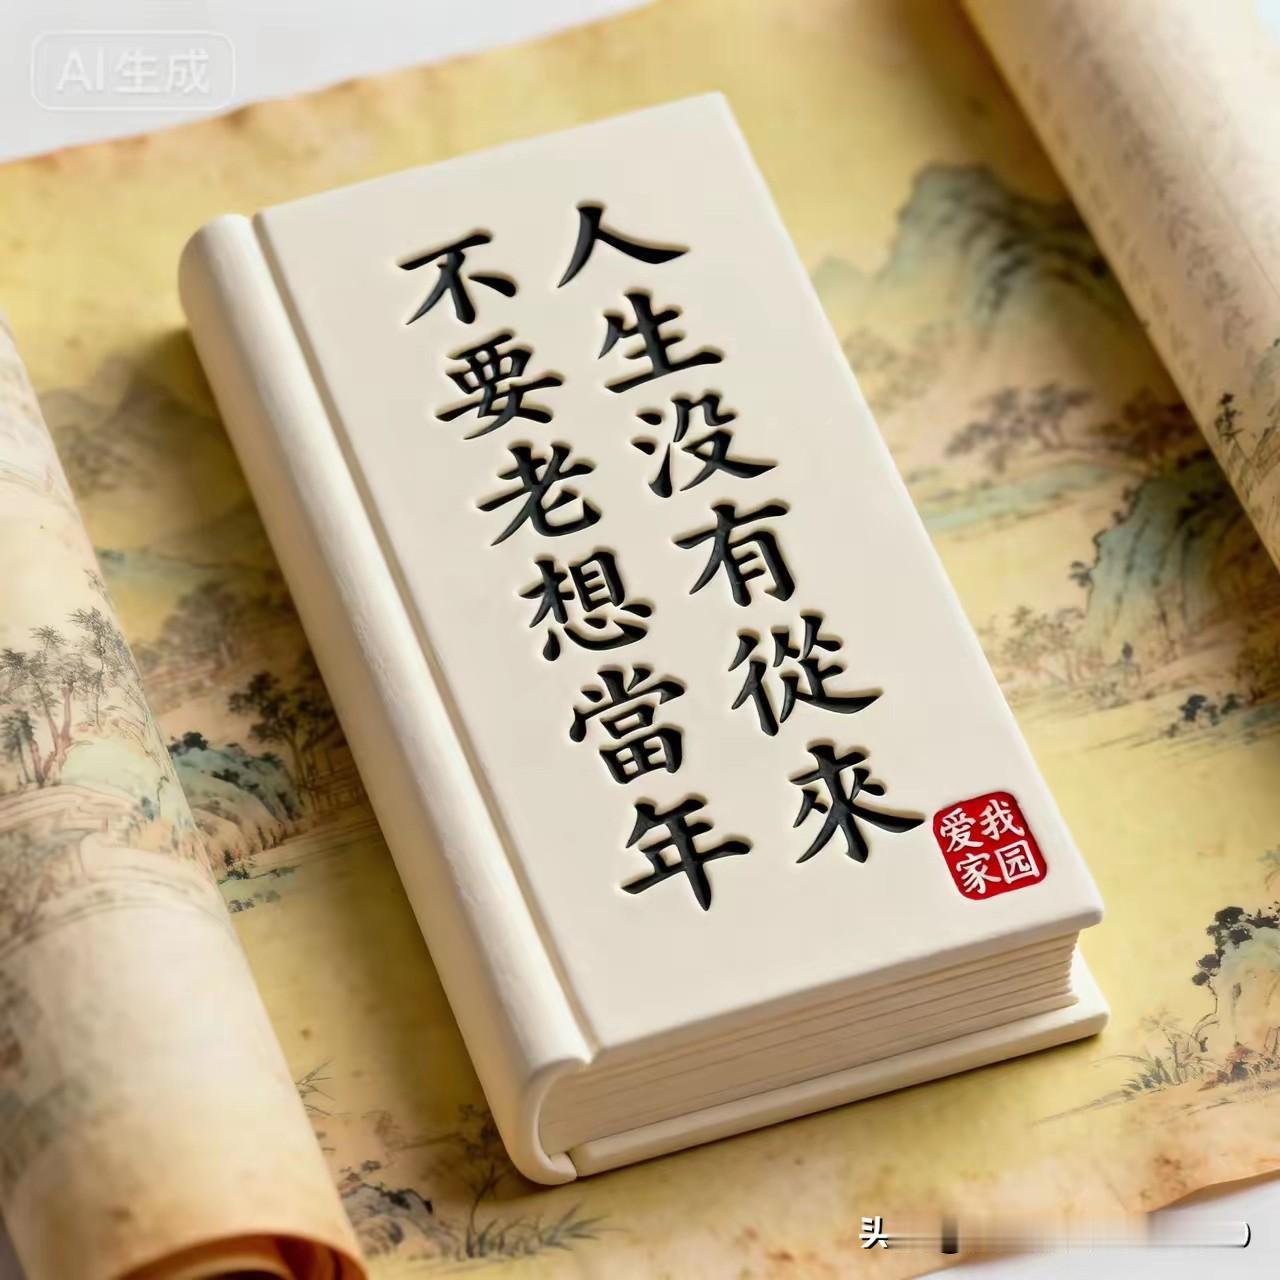 AI生成
人生没有從來
不要老想當年
我爱
家园
头